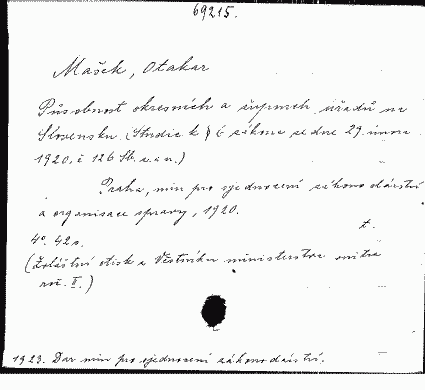 69215.
Mašek, Otakar
Působnost okresních a župních úřadů na
Slovensku (Studie k § 6 zákona ze dne 29. února
1920, č 126 Sb. z. a n.)
Praha, min pro sjednocení zákonodárství
a organisace správy, 1920.
t.
4° 42 s.
(Zvláštní otisk z Věstníku ministerstva vnitra
roč. II.)
1923. Dar min pro sjednocení zákonodárství.